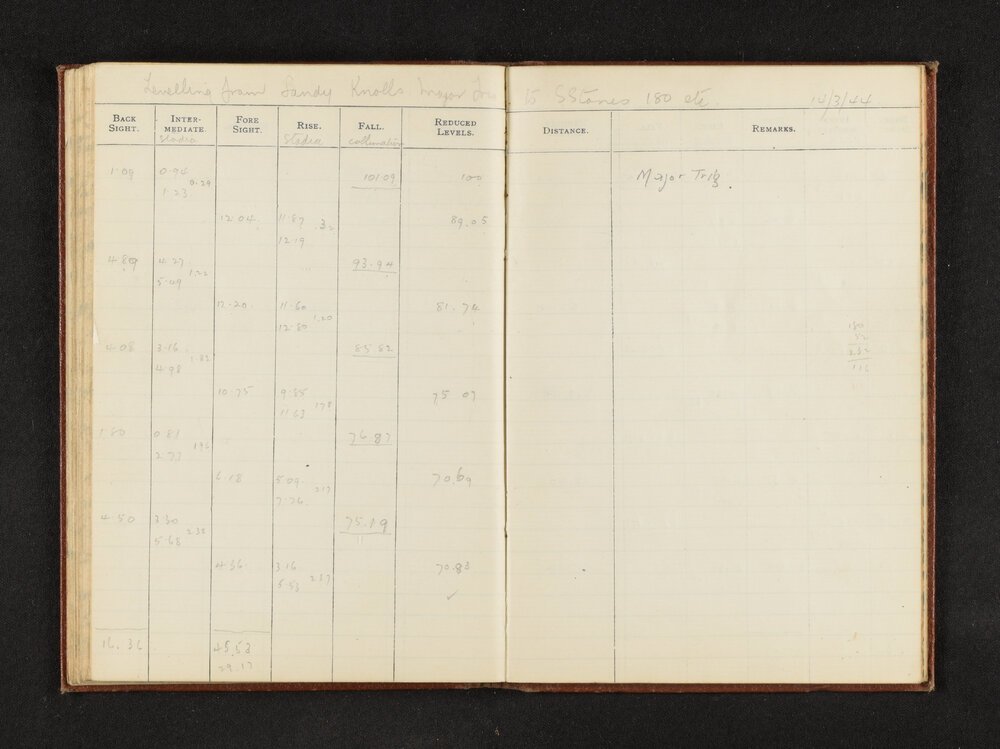 Levelling from Sandy Knolls Major Trig 15 SStones 180 etc. 14/3/44
BACK SIGHT. INTER-MEDIATE. FORE SIGHT. RISE. FALL. REDUCED LEVELS. DISTANCE. REMARKS.
Stadia Stadia collimation
1.09 0.94 0.29 101.09 100 Major Trig.
1.23
12.04 11.87 .32 89.05
12.19
4.89 4.27 93.94
5.49 1.22
12.20 11.60 1.20 81.74
12.80
4.08 3.16 1.82 85.82
4.98
10.75 9.85 1.78 75.07
11.63
1.80 0.81 76.87
2.77
6.18 5.09 2.17 70.69
7.26
4.50 3.30 2.38 75.19
5.68
4.36 3.16 2.37 70.83
5.53
16.36 45.53
29.17
180
52
116